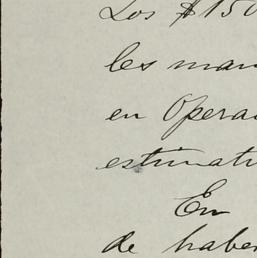 Los $150
les man
en Opera
estimati
En
de haber